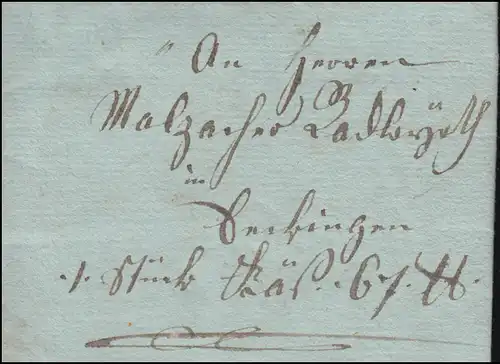 An Herren
Malzacher Badwirth
in
Seckingen
1. Stück Käß. 67. ℔.